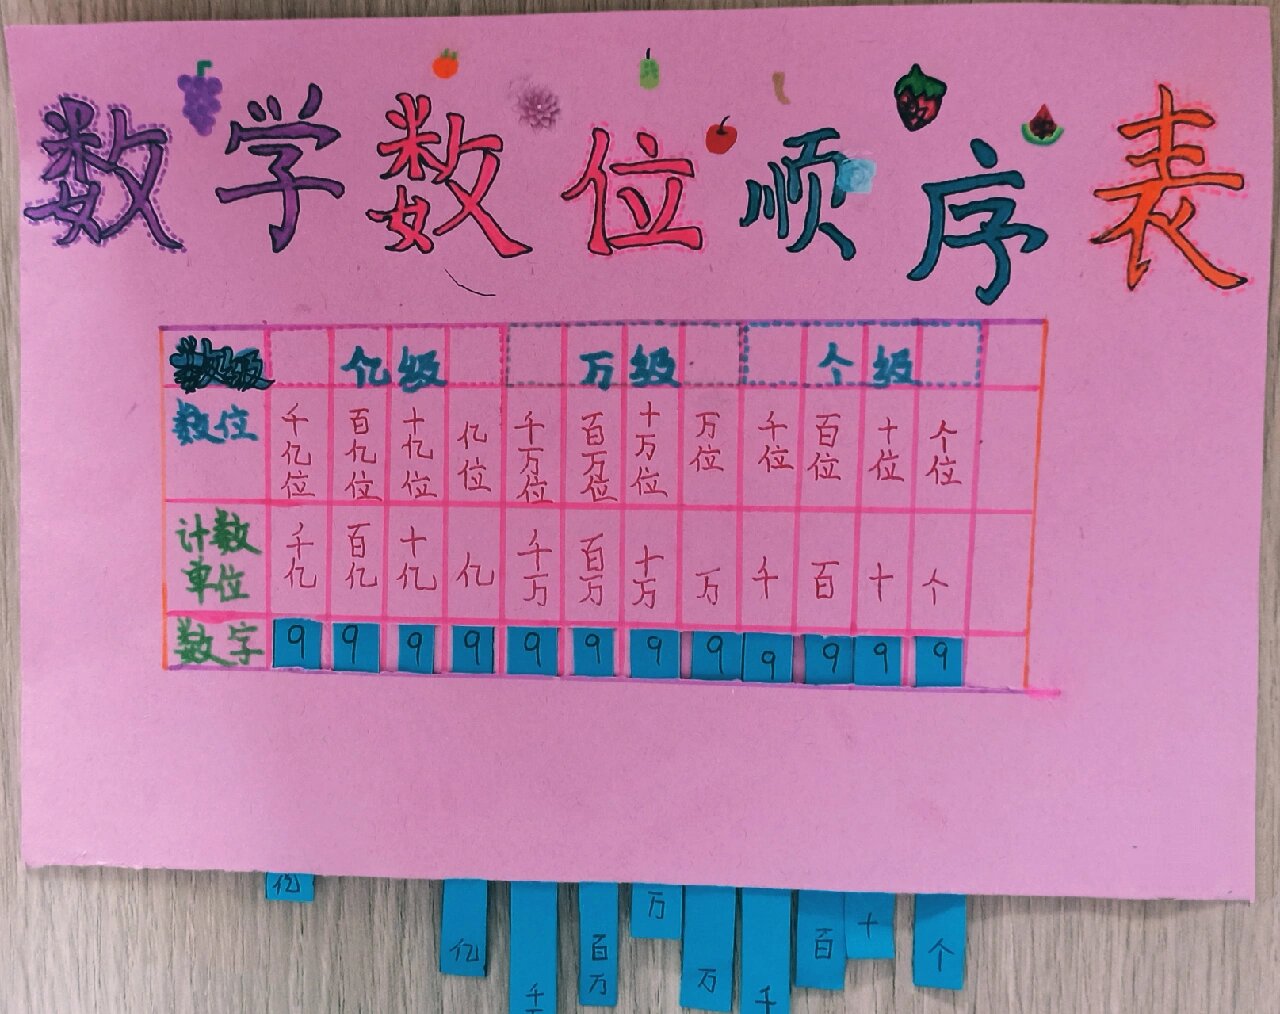 数学数位顺序表
数级 亿级 万级 个级
数位 千亿位 百亿位 十亿位 亿位 千万位 百万位 十万位 万位 千位 百位 十位 个位
计数单位 千亿 百亿 十亿 亿 千万 百万 十万 万 千 百 十 个
数字 9 9 9 9 9 9 9 9 9 9 9 9
亿 亿 千 百万 万 万 千 百 十 个